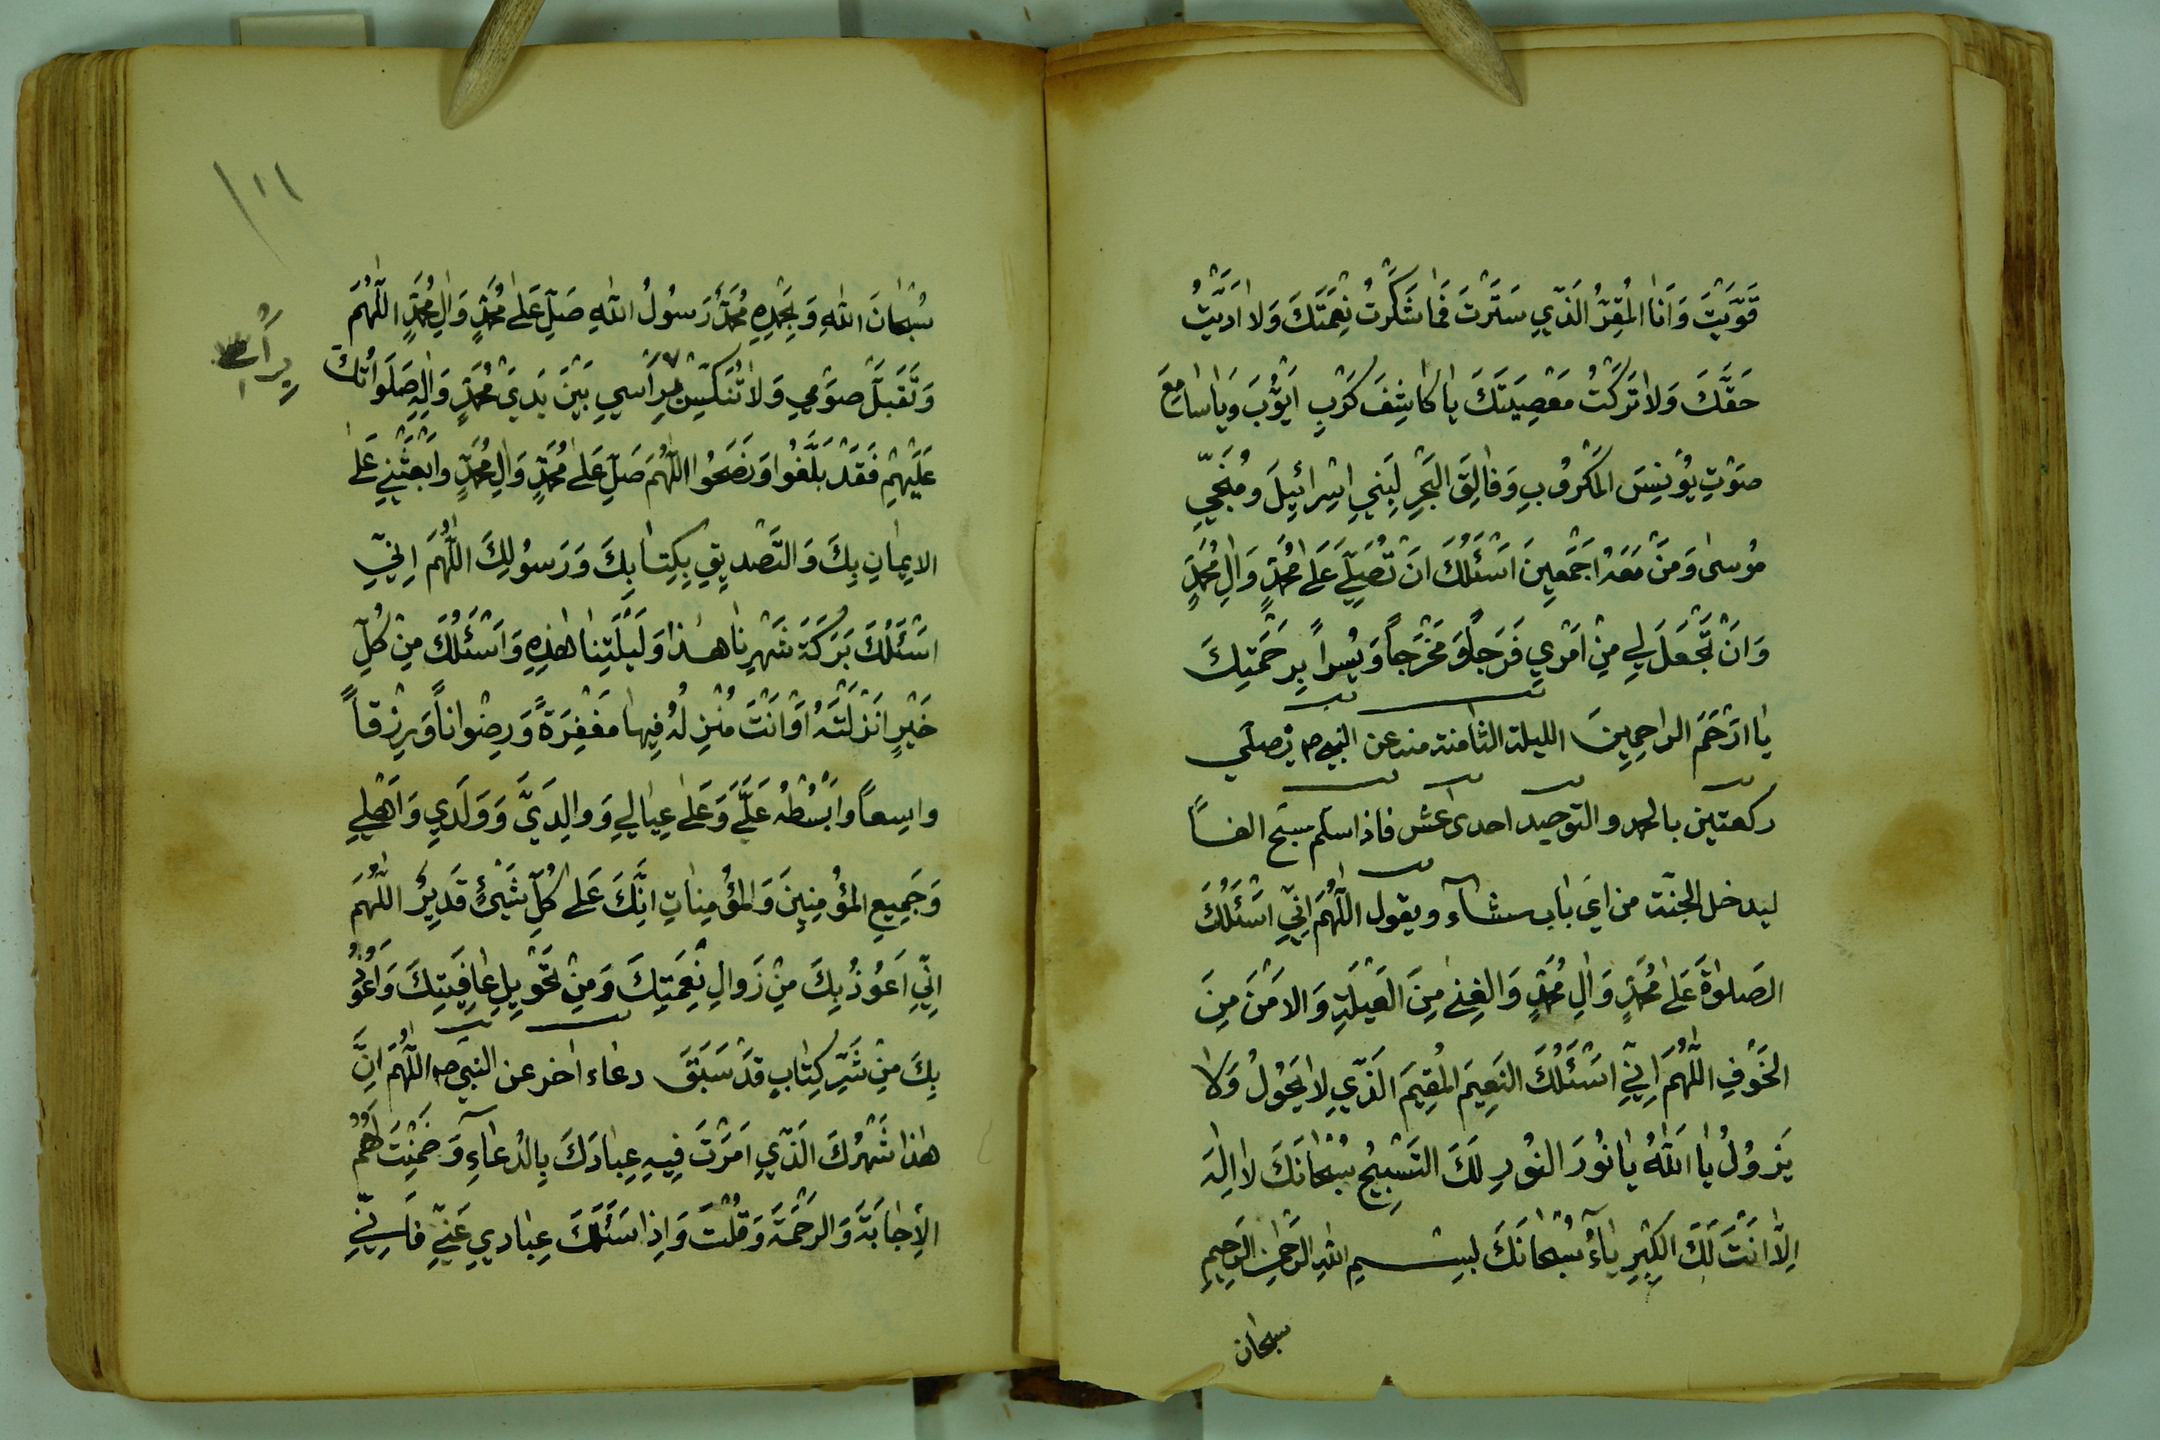 قَوَّيْتَ وَاَنَا الْمُقِرُّ الَّذِي سَتَرْتَ فَمَا شَكَرْتُ نِعْمَتَكَ وَلَا اَدَّيْتُ
حَقَّكَ وَلَا تَرَكْتُ مَعْصِيَتَكَ يَا كَاشِفَ كَرْبِ اَيُّوبَ وَيَا سَامِعَ
صَوْتِ يُونُسَ الْمَكْرُوبِ وَفَالِقَ الْبَحْرِ لِبَنِي اِسْرَائِيلَ وَمُنْجِيَ
مُوسىٰ وَمَنْ مَعَهُ اَجْمَعِينَ اَسْئَلُكَ اَنْ تُصَلِّيَ عَلىٰ مُحَمَّدٍ وَاٰلِ مُحَمَّدٍ
وَاَنْ تَجْعَلَ لِي مِنْ اَمْرِي فَرَجاً وَمَخْرَجاً وَيُسْراً بِرَحْمَتِكَ
يَا اَرْحَمَ الرَّاحِمِينَ الليلة الثامنة منه عن النبي ص يصلي
ركعتين بالحمد والتوحيد احدى عشر فاذا سلم سبح الفاً
ليدخل الجنة من اي باب شاء ويقول اَللّٰهُمَّ اِنِّي اَسْئَلُكَ
الصَّلوٰةَ عَلىٰ مُحَمَّدٍ وَاٰلِ مُحَمَّدٍ وَالْغِنىٰ مِنَ الْعَيْلَةِ وَالْاَمْنَ مِنَ
الْخَوْفِ اَللّٰهُمَّ اِنِّي اَسْئَلُكَ النَّعِيمَ الْمُقِيمَ الَّذِي لَا يَحُولُ وَلَا
يَزُولُ يَا اَللّٰهُ يَا نُورَ النُّورِ لَكَ التَّسْبِيحُ سُبْحَانَكَ لَا اِلٰهَ
اِلَّا اَنْتَ لَكَ الْكِبْرِيَاءُ سُبْحَانَكَ بِسْمِ اللهِ الرَّحْمٰنِ الرَّحِيمِ
سبحان
١٠١
سُبْحَانَ اللهِ وَبِحَمْدِهِ مُحَمَّدٌ رَسُولُ اللهِ صَلِّ عَلىٰ مُحَمَّدٍ وَاٰلِ مُحَمَّدٍ اَللّٰهُمَّ
وَتَقَبَّلْ صَوْمِي وَلَا تُنَكِّسْ بِرَاْسِي بَيْنَ يَدَيْ مُحَمَّدٍ وَاٰلِهِ صَلَوَاتُكَ
عَلَيْهِمْ فَقَدْ بَلَّغُوا وَنَصَحُوا اَللّٰهُمَّ صَلِّ عَلىٰ مُحَمَّدٍ وَاٰلِ مُحَمَّدٍ وَابْعَثْنِي عَلىٰ
الْاِيمَانِ بِكَ وَالتَّصْدِيقِ بِكِتَابِكَ وَرَسُولِكَ اَللّٰهُمَّ اِنِّي
اَسْئَلُكَ بَرَكَةَ شَهْرِنَا هٰذَا وَلَيْلَتِنَا هٰذِهِ وَاَسْئَلُكَ مِنْ كُلِّ
خَيْرٍ اَنْزَلْتَهُ اَوْ اَنْتَ مُنْزِلُهُ فِيهَا مَغْفِرَةً وَرِضْوَاناً وَرِزْقاً
وَاسِعاً وَابْسُطْهُ عَلَيَّ وَعَلىٰ عِيَالِي وَوَالِدَيَّ وَوَلَدِي وَاَهْلِي
وَجَمِيعِ الْمُؤْمِنِينَ وَالْمُؤْمِنَاتِ اِنَّكَ عَلىٰ كُلِّ شَيْئٍ قَدِيرٌ اَللّٰهُمَّ
اِنِّي اَعُوذُ بِكَ مِنْ زَوَالِ نِعْمَتِكَ وَمِنْ تَحْوِيلِ عَافِيَتِكَ وَاَعُوذُ
بِكَ مِنْ شَرِّ كِتَابٍ قَدْ سَبَقَ دعاء اخر عن النبي ص اَللّٰهُمَّ اِنَّ
هٰذَا شَهْرُكَ الَّذِي اَمَرْتَ فِيهِ عِبَادَكَ بِالدُّعَاءِ وَضَمِنْتَ لَهُمُ
الْاِجَابَةَ وَالرَّحْمَةَ وَقُلْتَ وَاِذَا سَئَلَكَ عِبَادِي عَنِّي فَاِنِّي